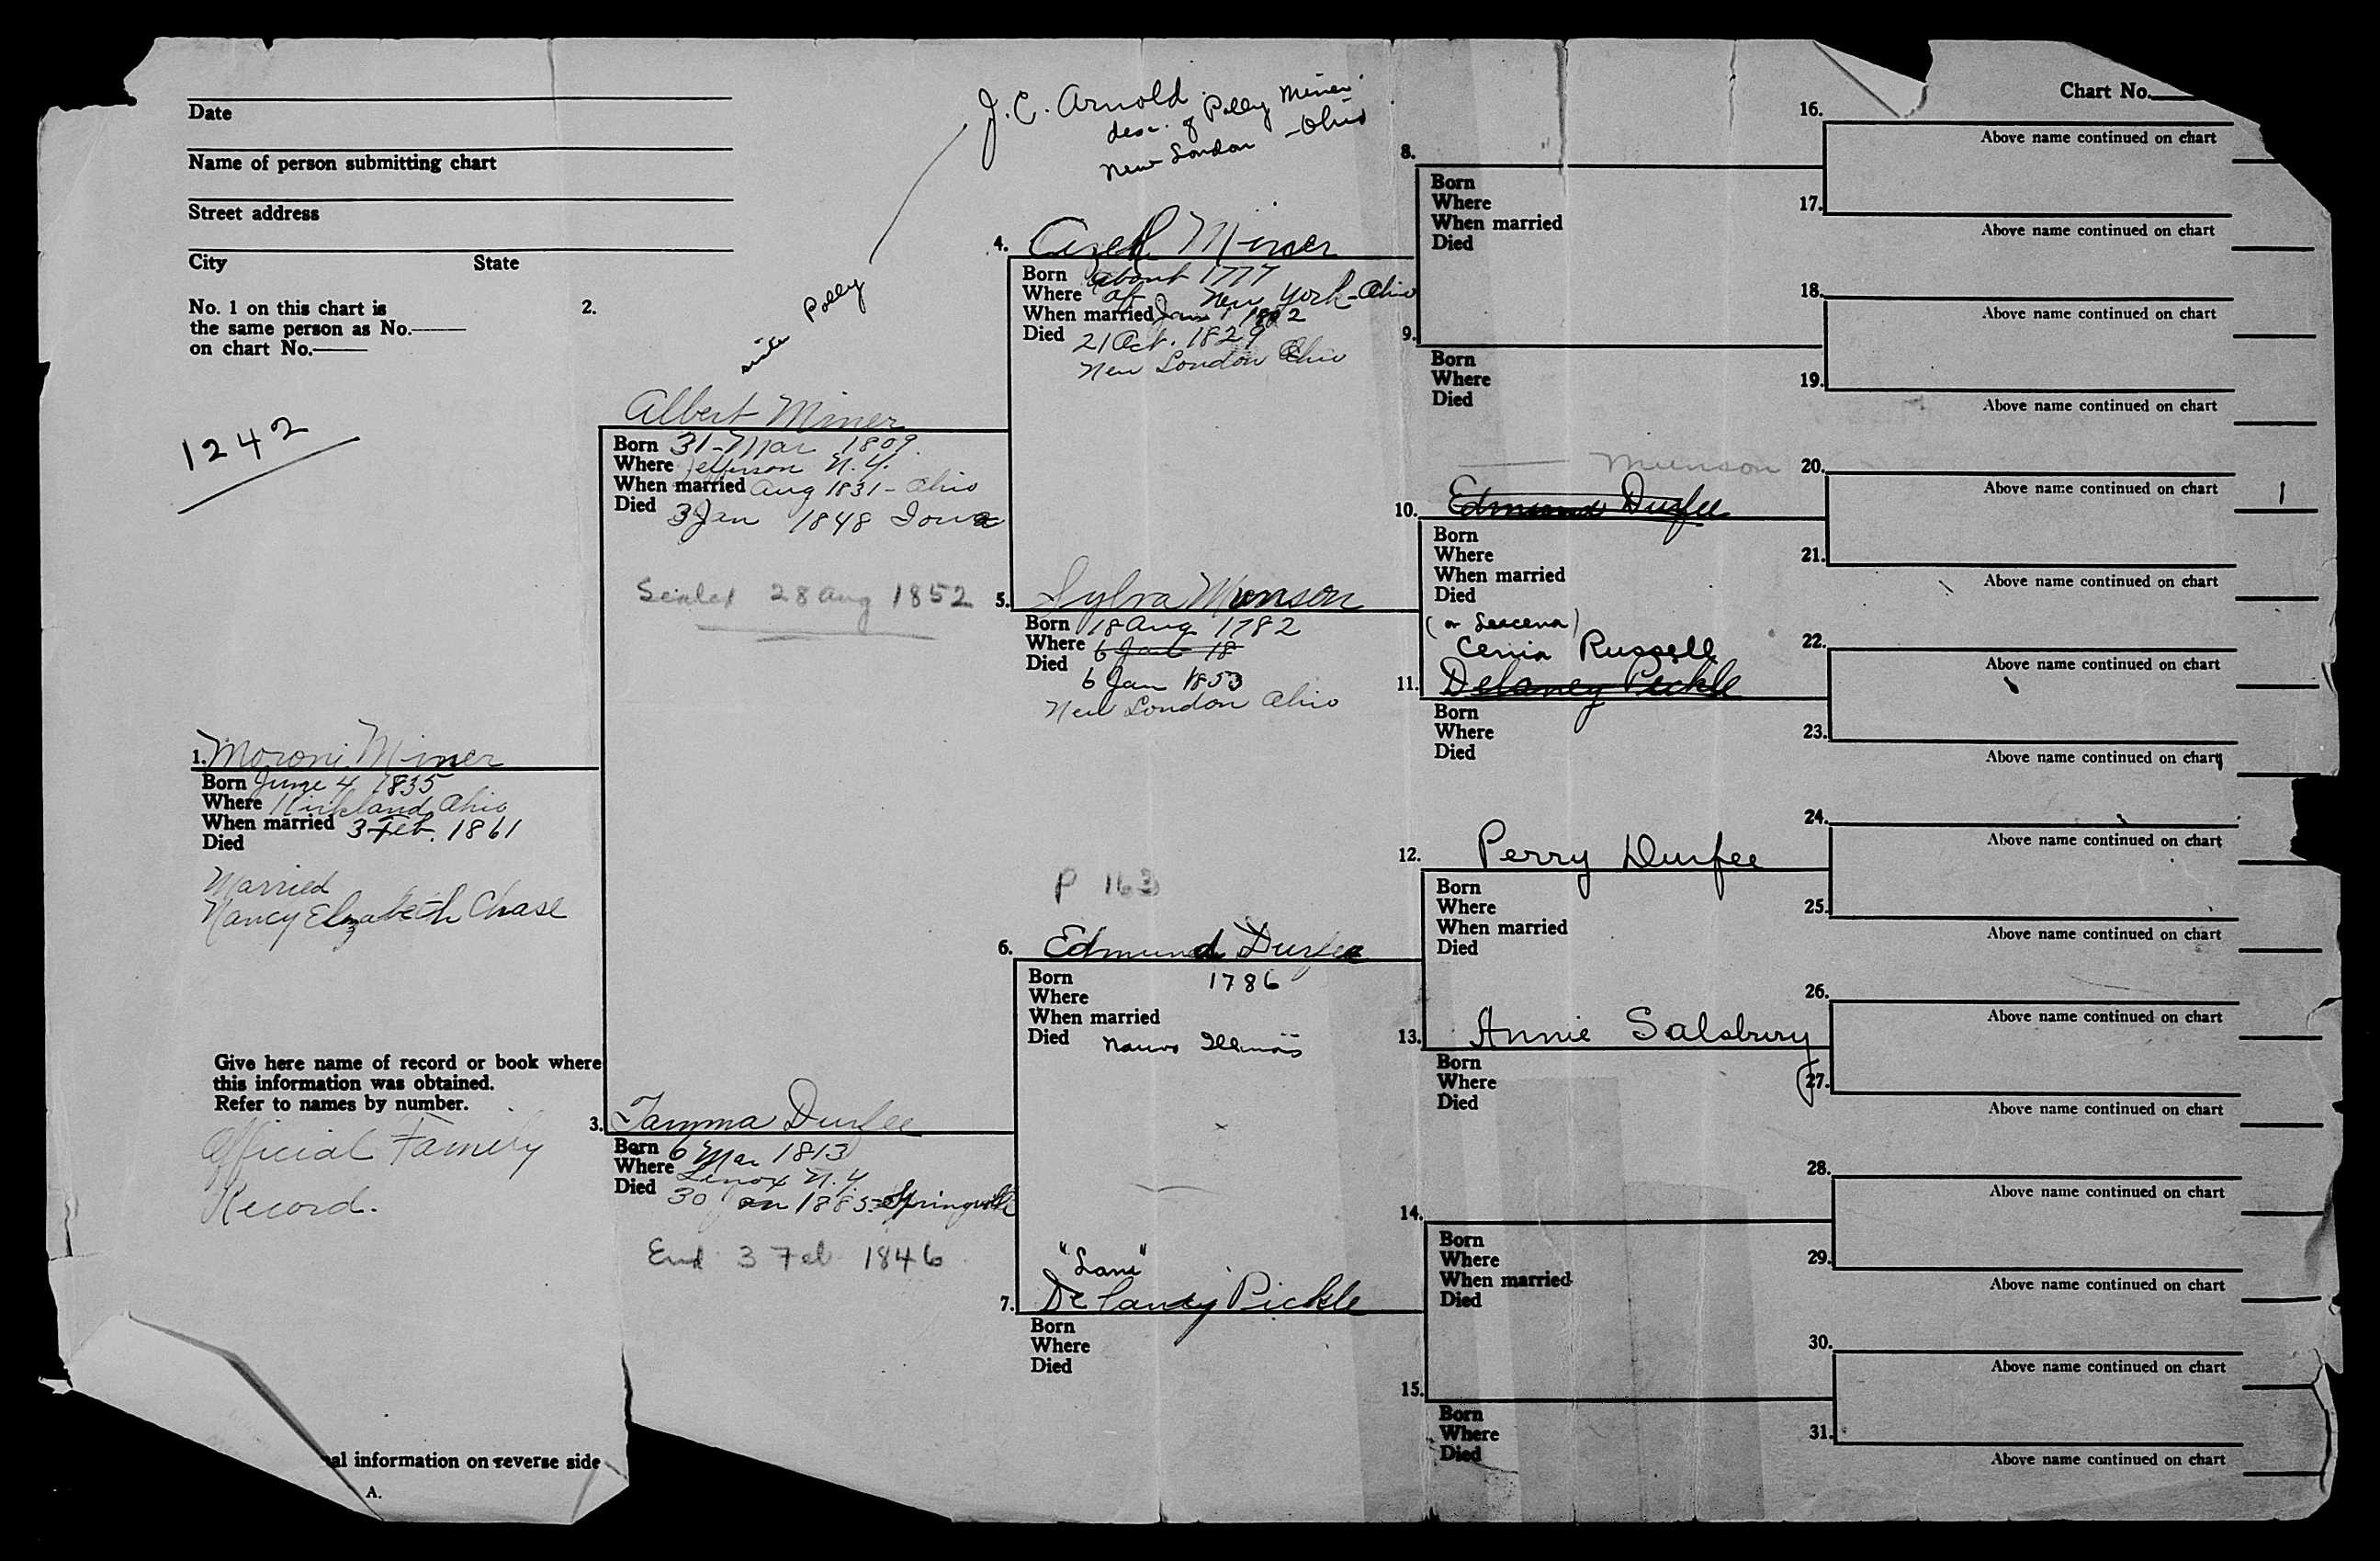 Date
Name of person submitting chart
Street address
City State
No. 1 on this chart is
the same person as No.
on chart No.
1242
J. C. Arnold
desc. of Polly Miner
New London - Ohio
Polly
1. Moroni Miner
Born June 4 1835
Where Kirkland Ohio
When married 3 Feb. 1861
Died
Married
Nancy Elizabeth Chase
Give here name of record or book where
this information was obtained.
Refer to names by number.
Official Family
Record.
al information on reverse side
A.
2.
Albert Miner
Born 31 - Mar 1809.
Where Jefferson N. Y.
When married Aug 1831 - Ohio
Died 3 Jan 1848 Iowa
Sealed 28 Aug 1852
3. Tamma Durfee
Born 6 Mar 1813
Where Lenox N. Y.
Died 30 Jan 1885 - Springville
End 3 Feb 1846
4. Azel Miner
Born about 1777
Where of New York - Ohio
When married Jan 1 1802
Died 21 Oct. 1829
New London Ohio
5. Sylva Munson
Born 18 Aug 1782
Where 6 Jan 18
Died
6 Jan 1853
New London Ohio
P 163
6. Edmund Durfee
Born 1786
Where
When married
Died Nauvo Illinois
"Lane"
7. Delaney Pickle
Born
Where
Died
8.
Born
Where
When married
Died
9.
Born
Where
Died
Munson
10. Edmund Durfee
Born
Where
When married
Died
Cenia Russell
11. Delaney Pickle
Born
Where
Died
12. Perry Durfee
Born
Where
When married
Died
13. Annie Salsbury
Born
Where
Died
14.
Born
Where
When married
Died
15.
Born
Where
Died
Chart No.
16.
Above name continued on chart
17.
Above name continued on chart
18.
Above name continued on chart
19.
Above name continued on chart
20.
Above name continued on chart
21.
Above name continued on chart
22.
Above name continued on chart
23.
Above name continued on chart
24.
Above name continued on chart
25.
Above name continued on chart
26.
Above name continued on chart
27.
Above name continued on chart
28.
Above name continued on chart
29.
Above name continued on chart
30.
Above name continued on chart
31.
Above name continued on chart